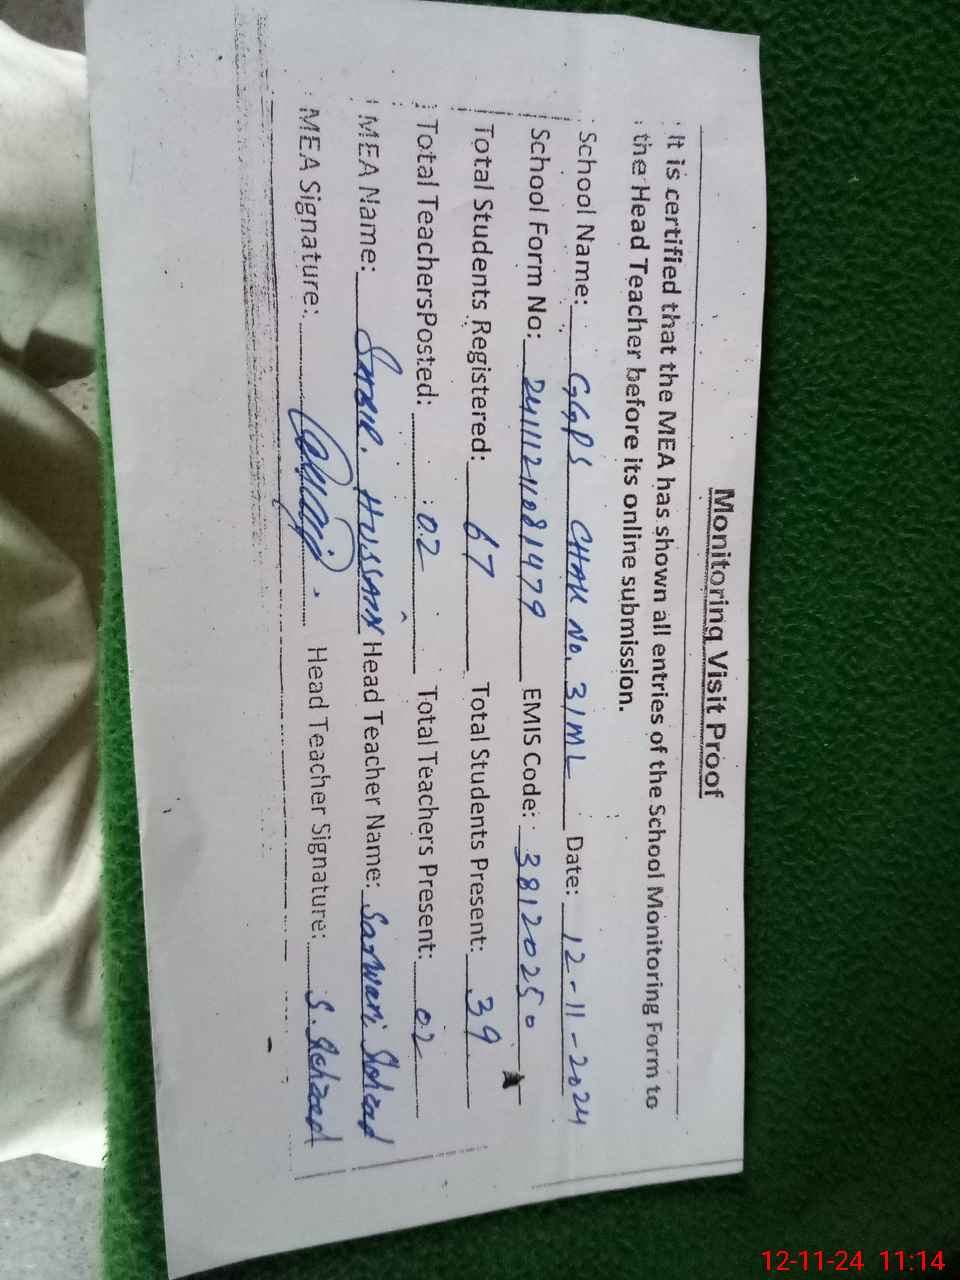 Monitoring Visit Proof
It is certified that the MEA has shown all entries of the School Monitoring Form to
the Head Teacher before its online submission.
School Name: GGPS CHAK No. 31ML Date: 12-11-2024
School Form No: 2411124081479 EMIS Code: 38120250
Total Students Registered: 67 Total Students Present: 39
Total TeachersPosted: 02 Total Teachers Present: 02
MEA Name: SABIR. HUSSAIN Head Teacher Name: Sarwari Shahzad
MEA Signature: Head Teacher Signature: S. Shahzad
12-11-24 11:14